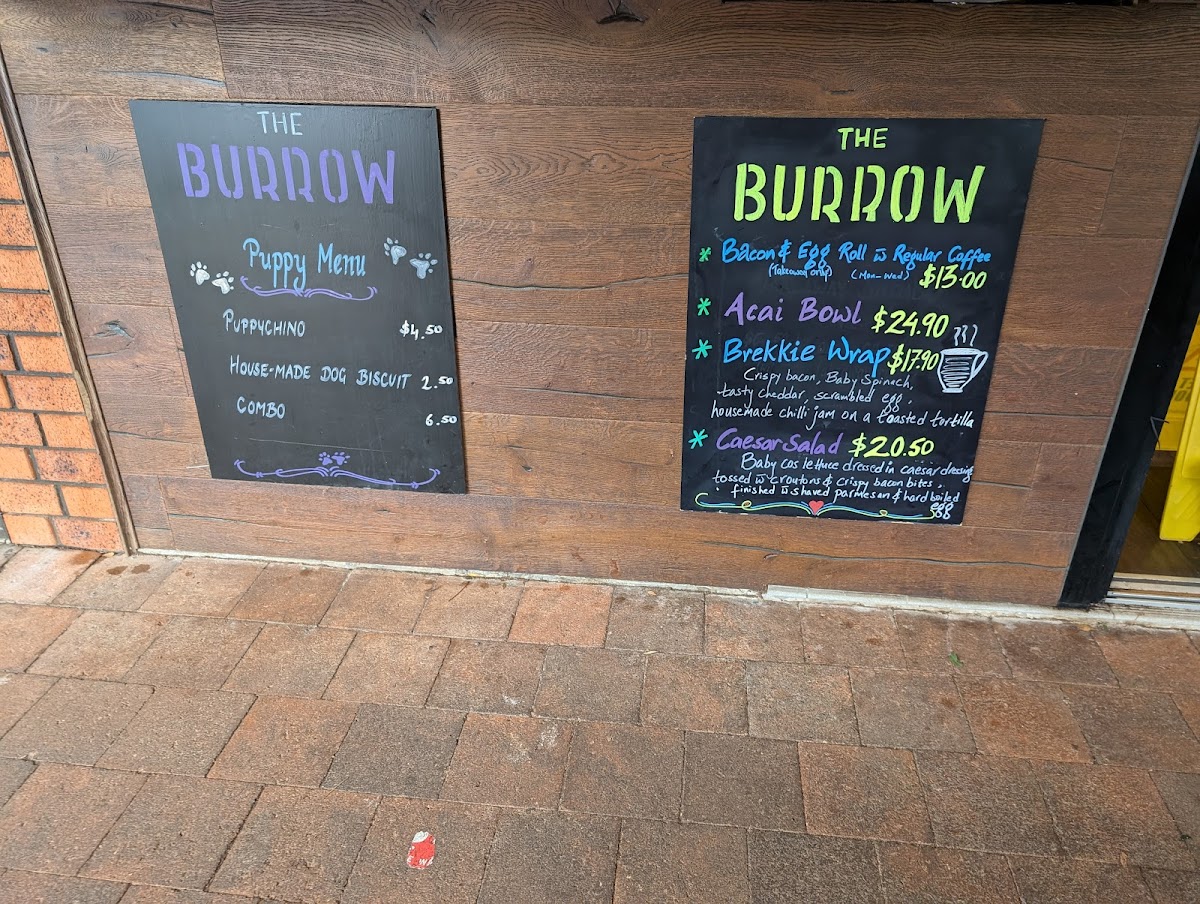 THE
BURROW
Puppy Menu
PUPPYCHINO $4.50
HOUSE-MADE DOG BISCUIT 2.50
COMBO 6.50
THE
BURROW
* Bacon & Egg Roll w Regular Coffee
(Takeaway only) (Mon-Wed) $13.00
* Acai Bowl $24.90
* Brekkie Wrap $17.90
Crispy bacon, Baby Spinach,
tasty cheddar, scrambled egg,
housemade chilli jam on a toasted tortilla
* Caesar Salad $20.50
Baby cos lettuce dressed in caesar dressing
tossed w croutons & crispy bacon bites,
finished w shaved parmesan & hard boiled
egg